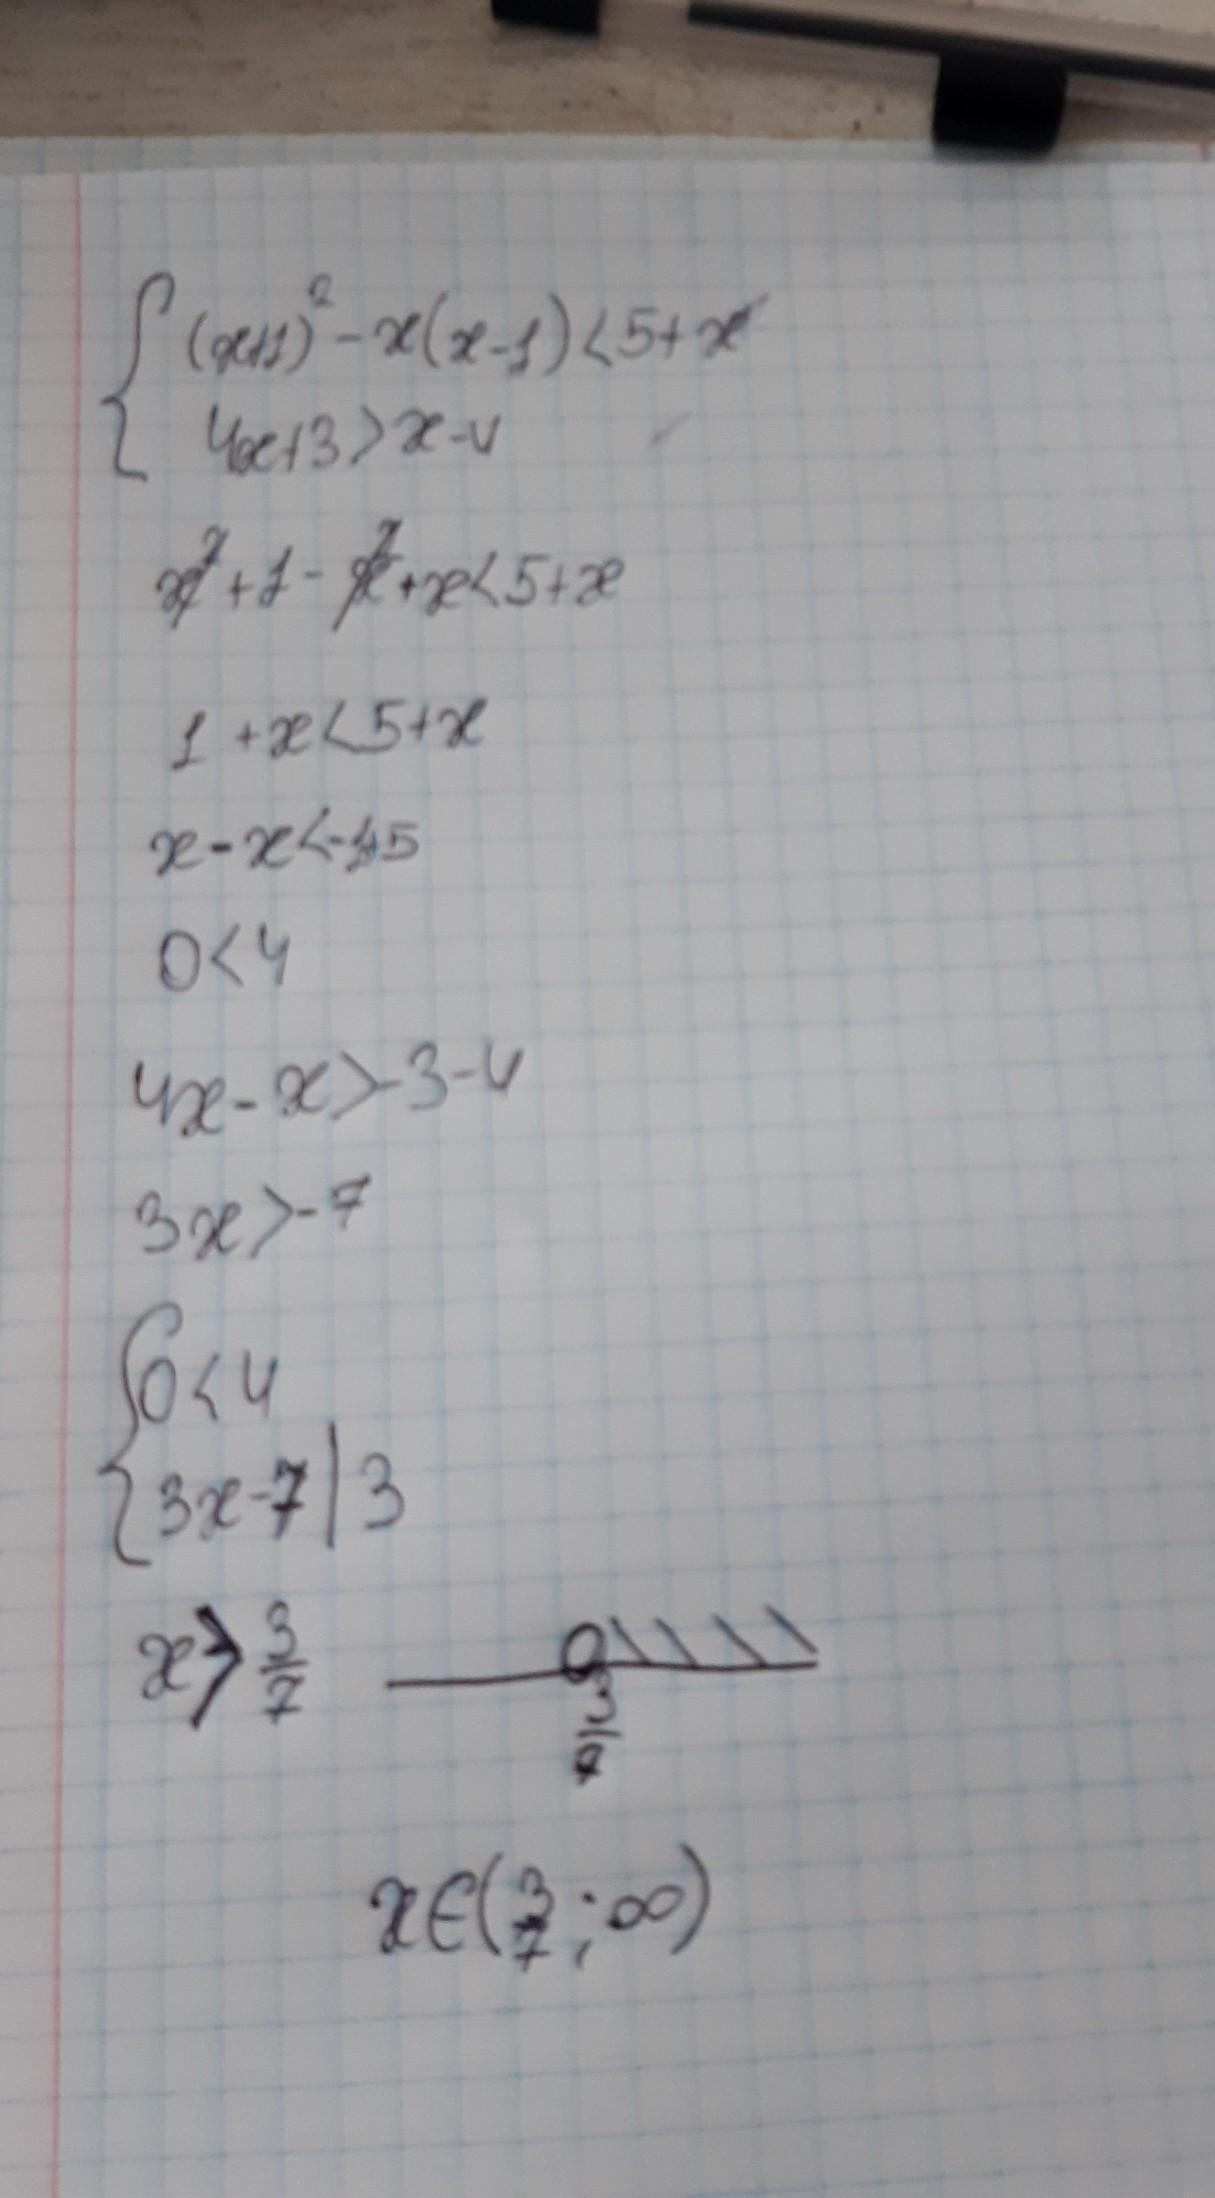 { (x+1)² - x(x-1) < 5+x
4x+3 > x-4
x²+1-x²+x<5+x
1 +x<5+x
x-x<-1+5
0<4
4x-x>-3-4
3x>-7
{ 0<4
3x-7|3
x>3/7
3/7
x∈(3/7;∞)